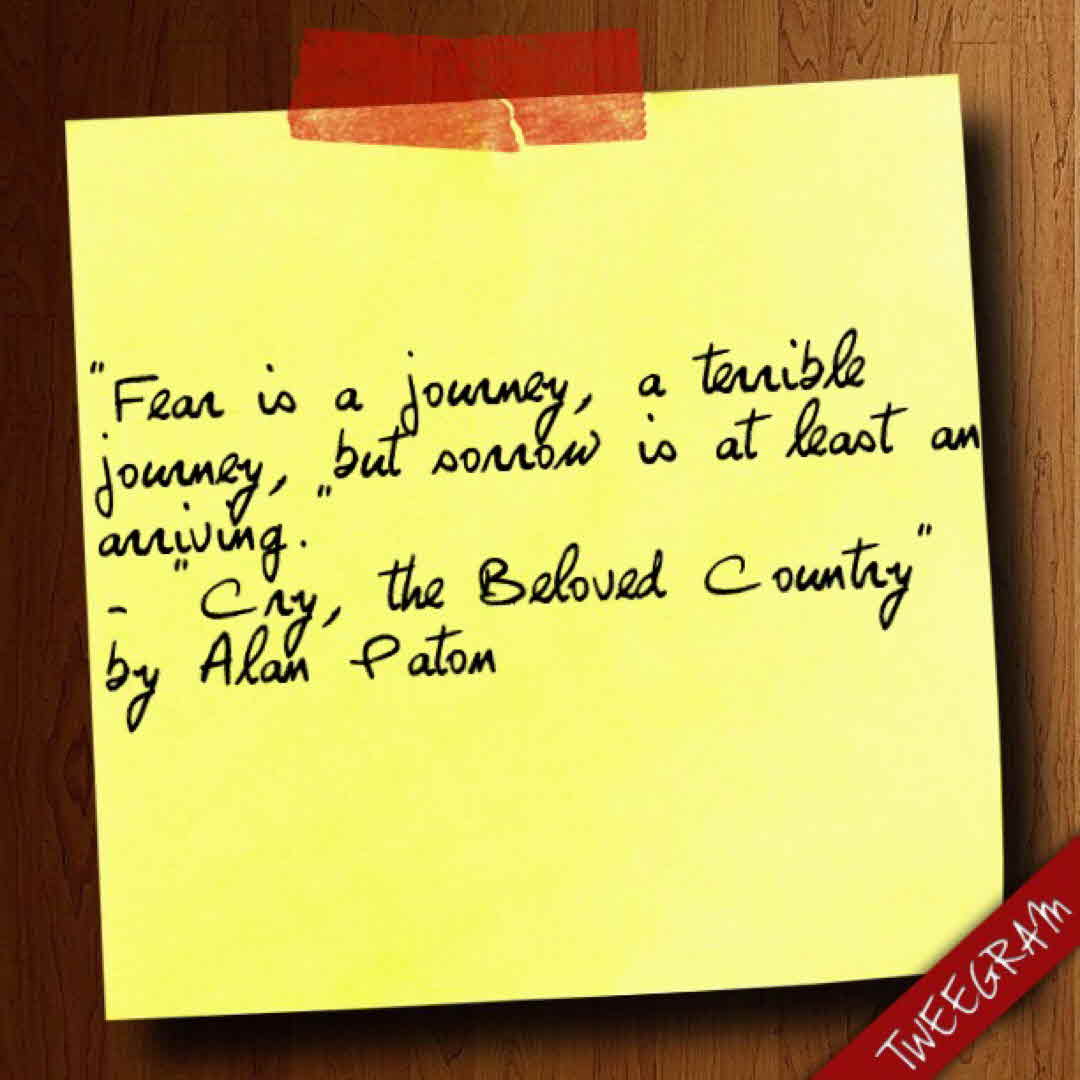 "Fear is a journey, a terrible
journey, but sorrow is at least an
arriving."
- "Cry, the Beloved Country"
by Alan Paton
TWEEGRAM